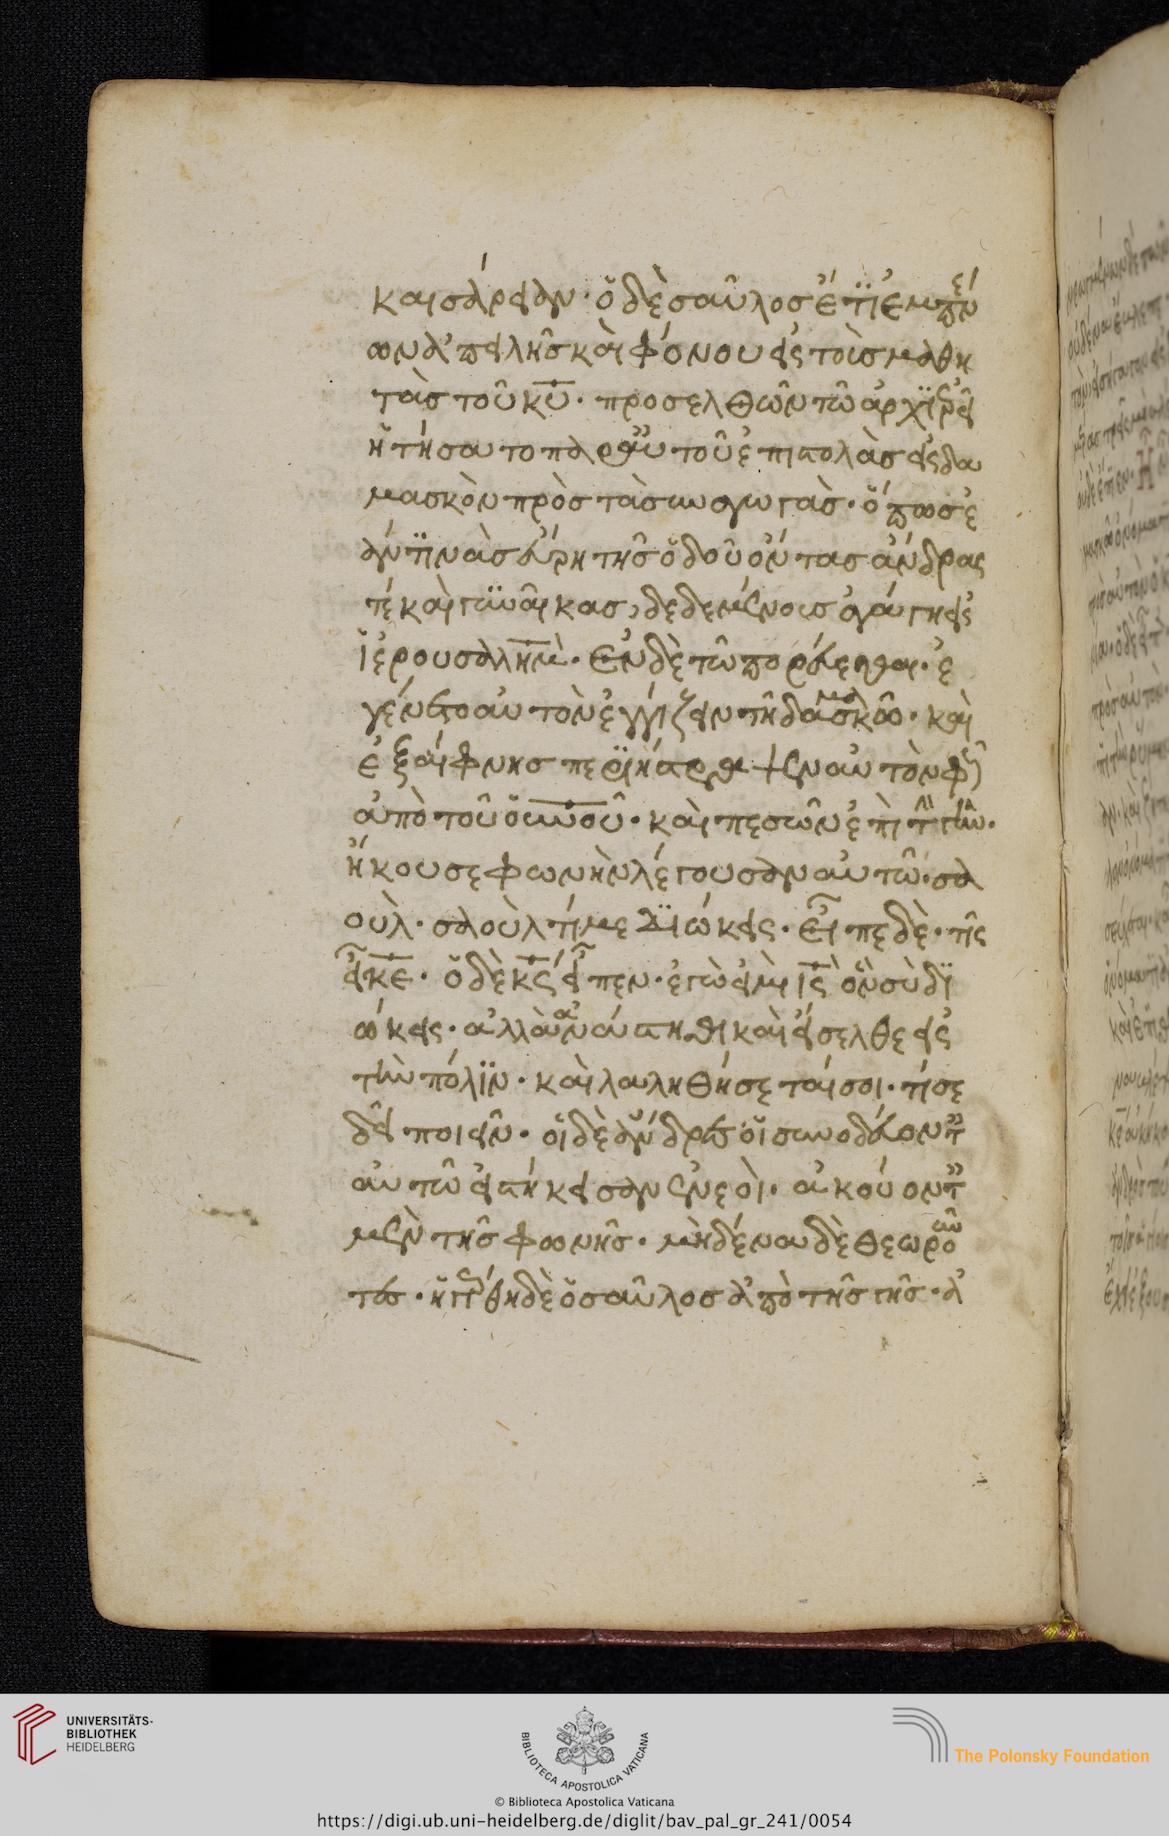 καισάρειαν· ὁ δὲ σαῦλος ἔτι ἐμπνέ
ων ἀπειλῆς καὶ φόνου εἰς τοὺς μαθη
τὰς τοῦ κ̅υ̅· προσελθὼν τῶ ἀρχϊερεῖ
ἠτήσατο παρ' αὐτοῦ ἐπιστολὰς εἰς δα
μασκὸν πρὸς τὰς συναγωγὰς· ὅπως ἐ
άν τϊνας εὕρη τῆς ὁδοῦ ὄντας ἄνδρας
τέ καὶ γυναῖκας, δεδεμένους ἀγάγη εἰς
ϊερουσαλήμ· Ἐν δὲ τῶ πορεύεσθαι· ἐ
γένετο αὐτὸν ἐγγίζειν τῆ δαμασκῶ· καὶ
ἐξαίφνης περϊήστραψεν αὐτὸν φῶς
ἀπὸ τοῦ ο̅υ̅ν̅ο̅υ̅· καὶ πεσὼν ἐπὶ τὴν γῆν·
ἤκουσε φωνὴν λέγουσαν αὐτῶ· σα
οὺλ· σαοὺλ τί με δϊώκεις· εἶπε δὲ· τίς
εἶ κ̅ε̅· ὁ δὲ κ̅ς̅ εἶπεν· ἐγὼ εἰμὶ ι̅ς̅ ὃν σὺ δϊ
ώκεις· ἀλλὰ ἀνάστηθι καὶ εἴσελθε εἰς
τὴν πόλϊν· καὶ λαληθήσεταί σοι· τί σε
δεῖ ποιεῖν· οἱ δὲ ἄνδρες οἱ συνοδεύοντες
αὐτῶ εἱστήκεισαν ἐνεοὶ· ἀκούοντες
μὲν τῆς φωνῆς· μηδένα δὲ θεωροῦν
τες· ἠγέρθη δὲ ὁ σαῦλος ἀπὸ τῆς γῆς· ἀ
UNIVERSITÄTS-
BIBLIOTHEK
HEIDELBERG
BIBLIOTECA APOSTOLICA VATICANA
The Polonsky Foundation
© Biblioteca Apostolica Vaticana
https://digi.ub.uni-heidelberg.de/diglit/bav_pal_gr_241/0054